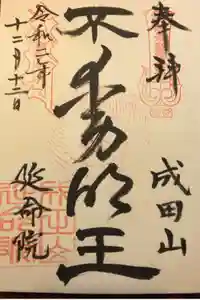 奉拝
成田山
不動明王
令和二年
十二月十二日
延命院